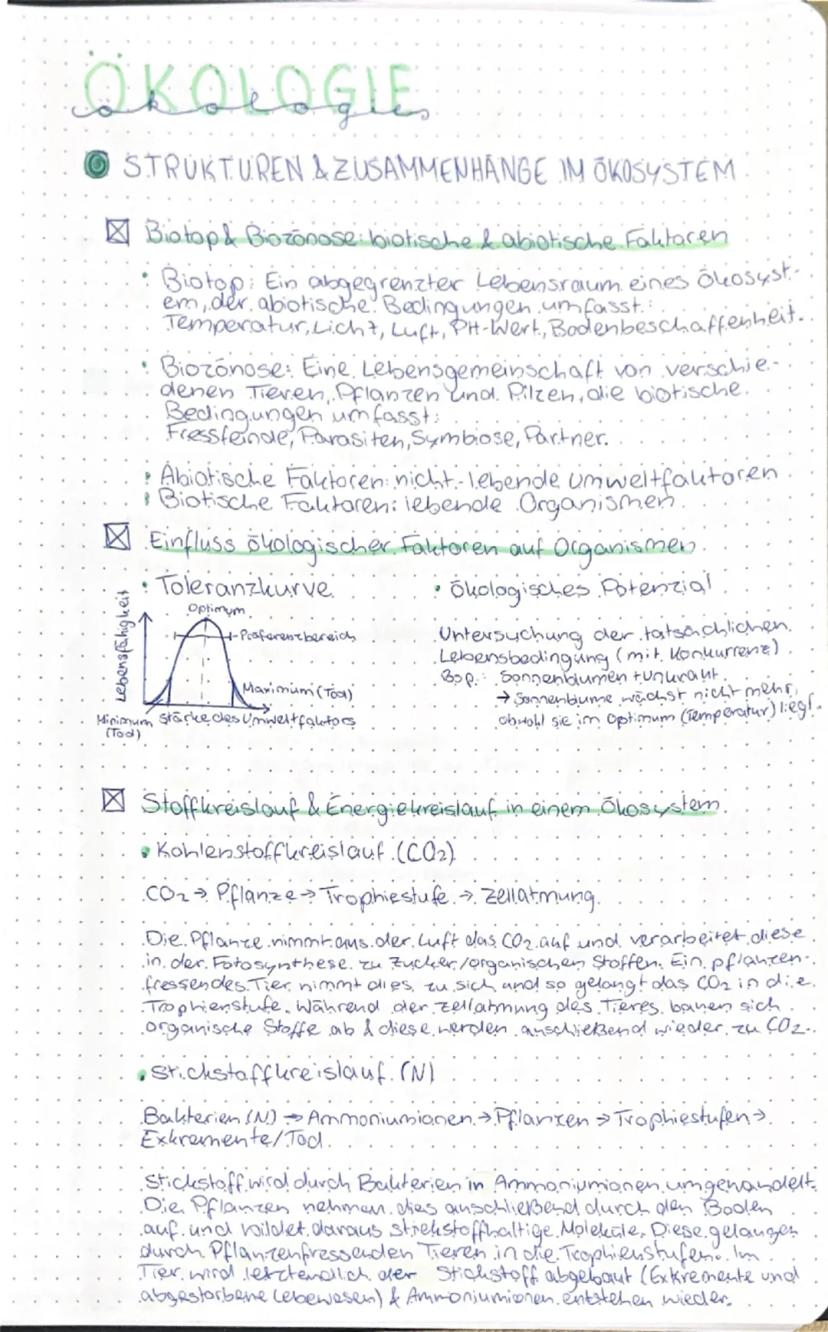 ÖKOLOGIE
ökologie
STRUKTUREN & ZUSAMMENHÄNGE IM ÖKOSYSTEM
Biotop & Biozönose: biotische & abiotische Faktoren
• Biotop: Ein abgegrenzter Lebensraum eines Ökosyst-
em, der abiotische Bedingungen umfasst:
Temperatur, Licht, Luft, PH-Wert, Bodenbeschaffenheit.
• Biozönose: Eine Lebensgemeinschaft von verschie-
denen Tieren, Pflanzen und Pilzen, die biotische
Bedingungen umfasst:
Fressfeinde, Parasiten, Symbiose, Partner.
• Abiotische Faktoren: nicht-lebende Umweltfaktoren
• Biotische Faktoren: lebende Organismen
Einfluss ökologischer Faktoren auf Organismen
• Toleranzkurve
Lebensfähigkeit
Optimum
Präferenzbereich
Maximum (Tod)
Minimum (Tod)
Stärke des Umweltfaktors
• Ökologisches Potenzial
Untersuchung der tatsächlichen
Lebensbedingung (mit Konkurrenz)
Bsp.: Sonnenblumen + Unkraut
→ Sonnenblume wächst nicht mehr,
obwohl sie im Optimum (Temperatur) liegt.
Stoffkreislauf & Energiekreislauf in einem Ökosystem
• Kohlenstoffkreislauf (CO₂)
CO₂ → Pflanze → Trophiestufe → Zellatmung
Die Pflanze nimmt aus der Luft das CO₂ auf und verarbeitet diese
in der Fotosynthese zu Zucker/organischen Stoffen. Ein pflanzen-
fressendes Tier nimmt dies zu sich und so gelangt das CO₂ in die
Trophienstufe. Während der Zellatmung des Tieres bauen sich
organische Stoffe ab & diese werden anschließend wieder zu CO₂.
• Stickstoffkreislauf (N)
Bakterien (N) → Ammoniumionen → Pflanzen → Trophiestufen →
Exkremente/Tod
Stickstoff wird durch Bakterien in Ammoniumionen umgewandelt.
Die Pflanzen nehmen dies anschließend durch den Boden
auf und bildet daraus stickstoffhaltige Moleküle. Diese gelangen
durch Pflanzenfressenden Tieren in die Trophienstufen. Im
Tier wird letztendlich der Stickstoff abgebaut (Exkremente und
abgestorbene Lebewesen) & Ammoniumionen entstehen wieder.